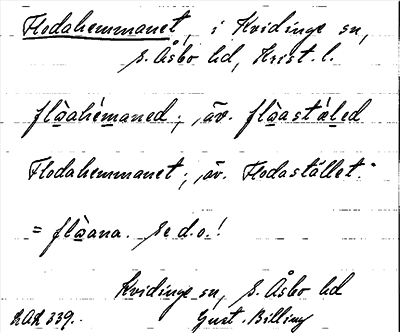 Flodahemmanet, i Kvidinge sn,
S. Åsbo hd, Krist. l.
flàahémaned; äv. flàastäled
Flodahemmanet; äv. Flodastället.
= flàana. Se d.o.!
Kvidinge sn, S. Åsbo hd
RAR 339. Gust. Billing